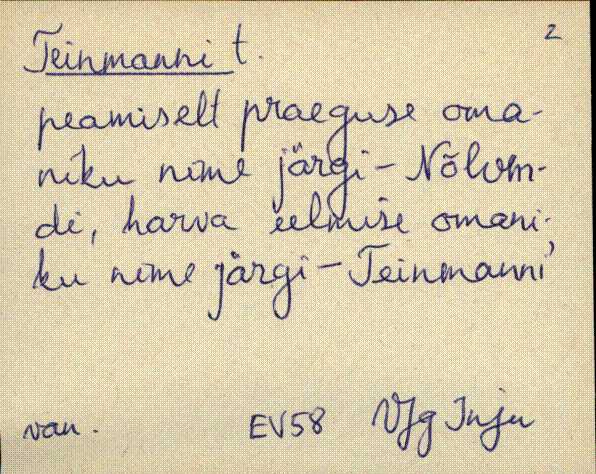 2
Teinmanni t.
peamiselt praeguse oma-
niku nime järgi – Nõlvan-
di, harva eelmise omani-
ku nime järgi – Teinmanni
van. EV58 VJg Inju